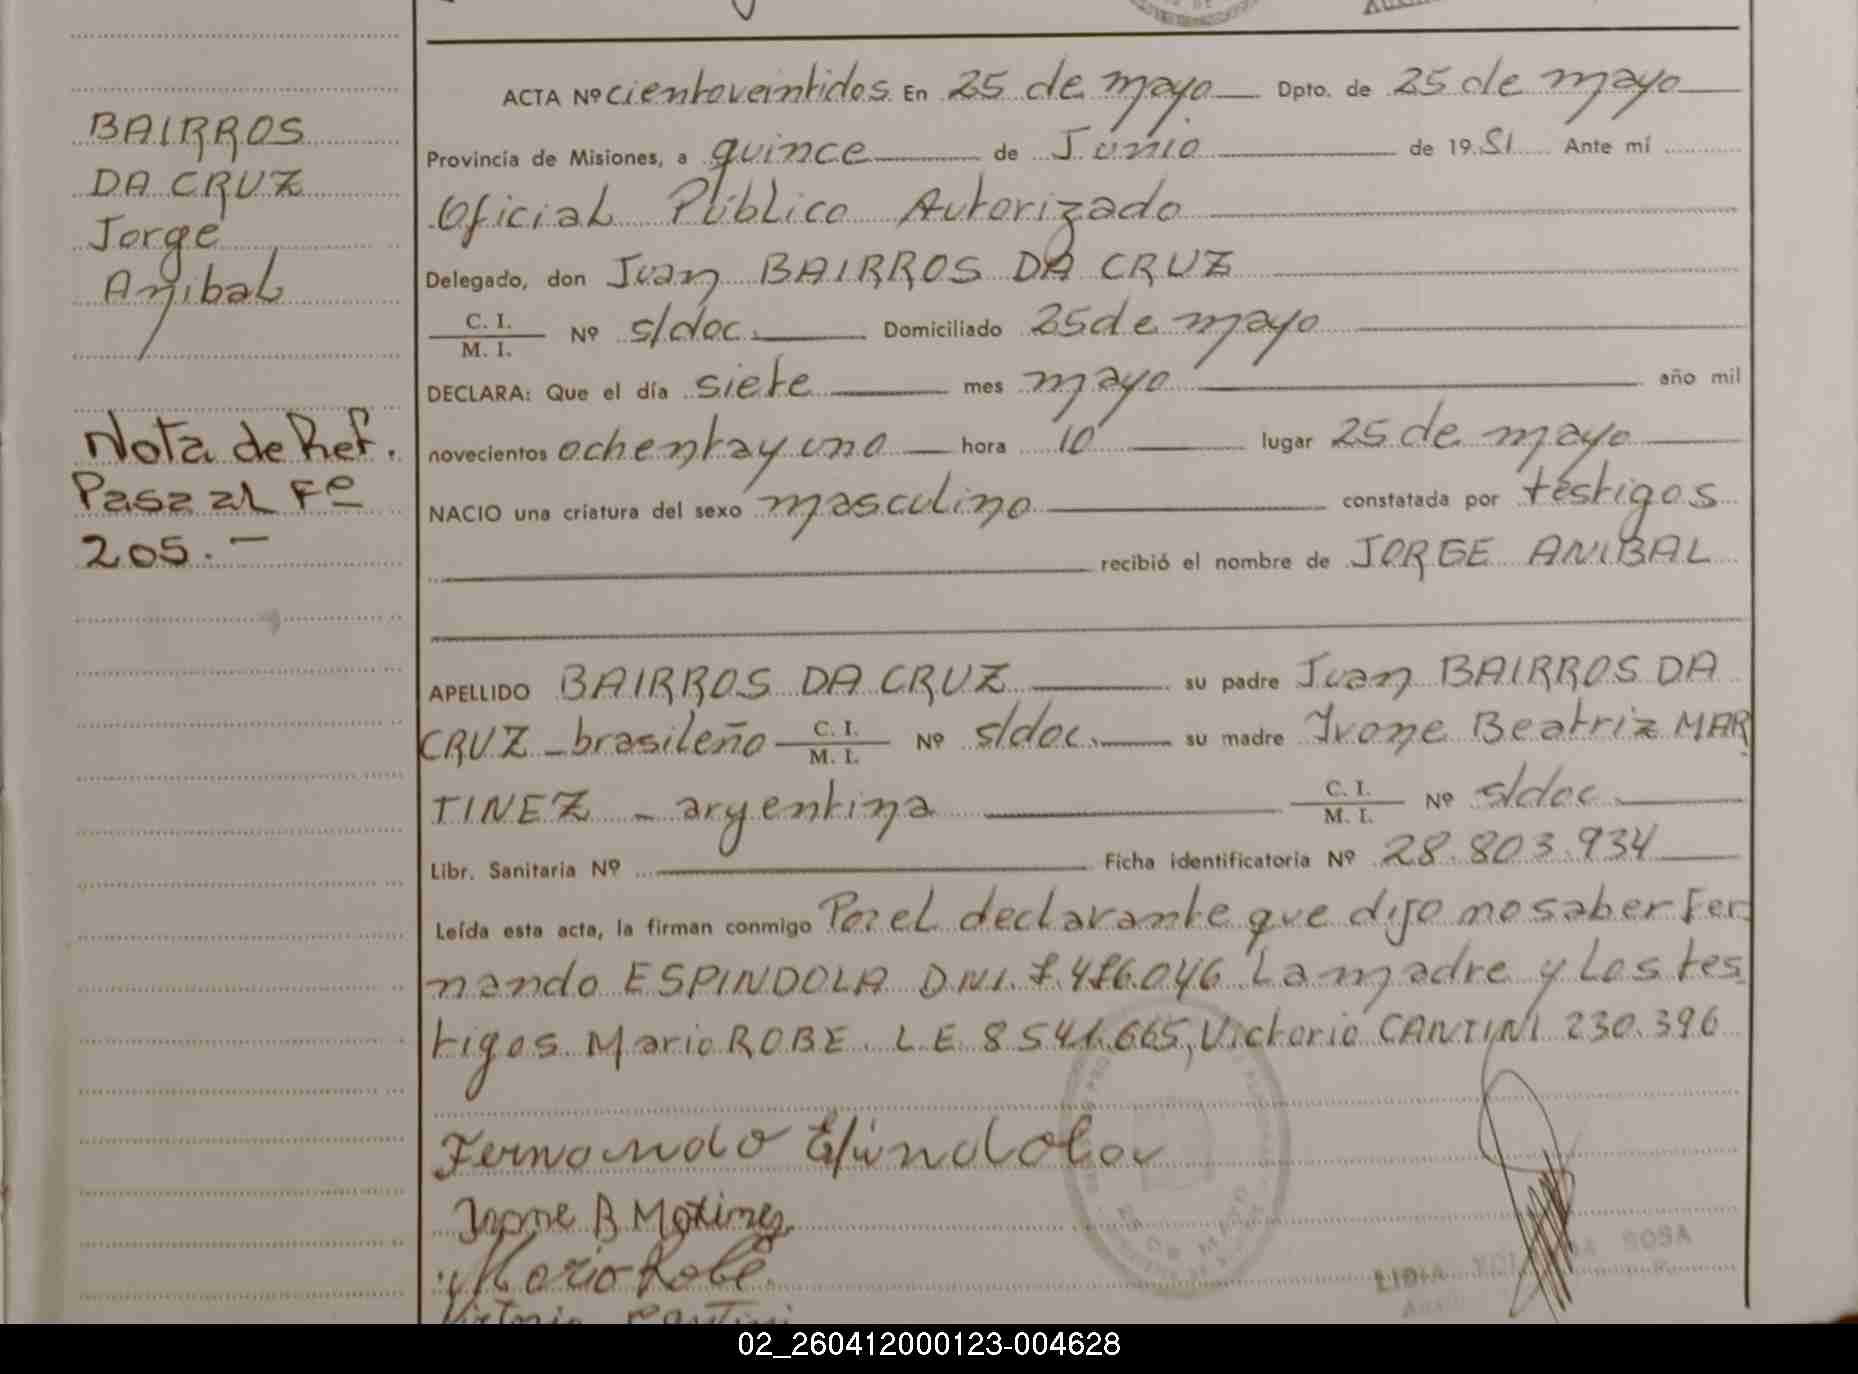 BAIRROS
DA CRUZ
Jorge
Anibal
Nota de Ref.
Pasa al Fº
205.-
ACTA Nº cientoveintidos En 25 de mayo Dpto. de 25 de mayo
Provincia de Misiones, a quince de Junio de 1981 Ante mí
Oficial Público Autorizado
Delegado, don Juan BAIRROS DA CRUZ
C. I.
M. I. Nº s/doc. Domiciliado 25 de mayo
DECLARA: Que el día siete mes mayo año mil
novecientos ochenta y uno hora 10 lugar 25 de mayo
NACIO una criatura del sexo masculino constatada por testigos
recibió el nombre de JORGE ANIBAL
APELLIDO BAIRROS DA CRUZ su padre Juan BAIRROS DA
CRUZ - brasileño C. I. M. I. Nº s/doc. su madre Ivone Beatriz MAR
TINEZ - argentina C. I. M. I. Nº s/doc
Libr. Sanitaria Nº Ficha identificatoria Nº 28.803.934
Leída esta acta, la firman conmigo Por el declarante que dijo no saber Fer
nando ESPINDOLA D.N.I. La madre y Los tes
tigos Mario ROBE. L E 8541.665, Victorio CANTINI 230.396
Fernando Espindola
Ivone B Martinez
Mario Robe
Victorio Cantini
25 DE MAYO
LIDIA ROSA
02_260412000123-004628